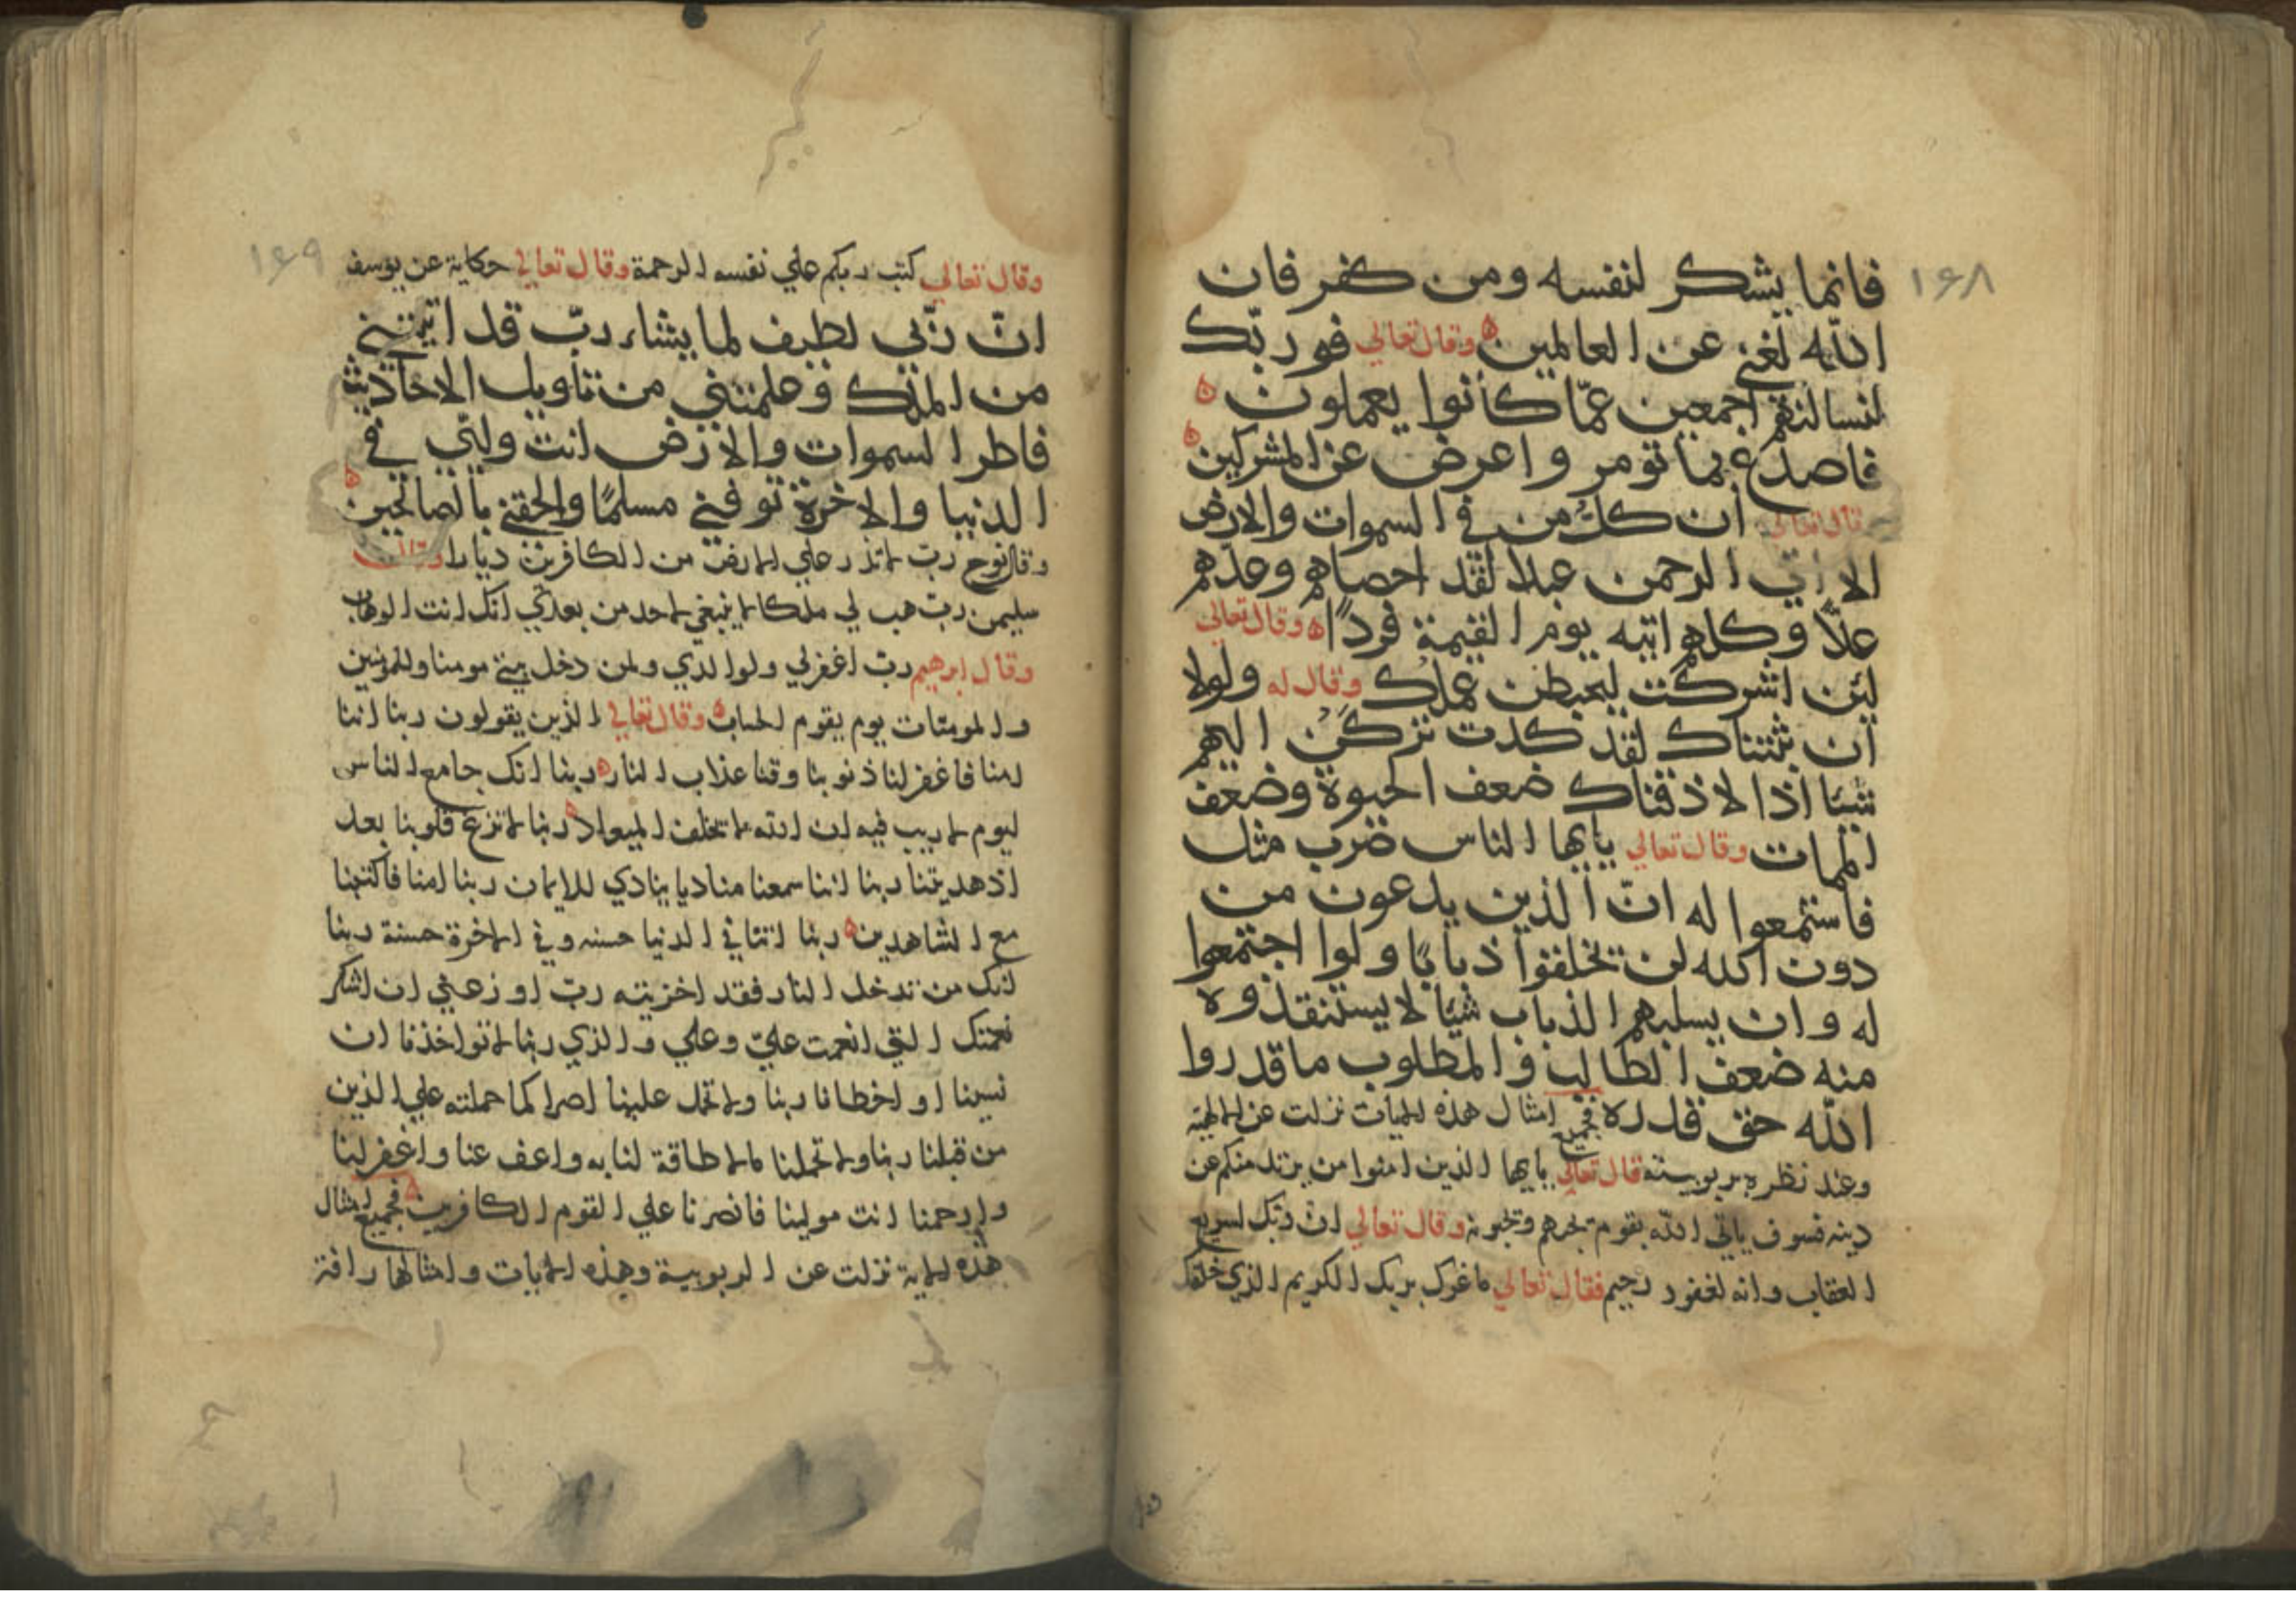 ١٦٨
فانما يشكر لنفسه ومن كفر فان
الله لغني عن العالمين وقال تعالي فوربك
لنسالنهم اجمعين عمّا كانوا يعملون
فاصدع بما تومر واعرض عن المشركين
قال تعالي ان كلّ من في السموات والارض
الا اتي الرحمن عبدا لقد احصاهم وعدّهم
عدّا وكلهم اتيه يوم القيمة فردًا وقال تعالي
لئن اشركت ليحبطن عملك وقال له ولولا
ان ثبتناك لقد كدت تركن اليهم
شيئا اذا لاذقناك ضعف الحيوة وضعف
الممات وقال تعالي يايها الناس ضرب مثل
فاستمعوا له انّ الذين يدعون من
دون الله لن يخلقوا ذبابًا ولوا اجتمعوا
له وان يسلبهم الذباب شيًا لا يستنقذوه
منه ضعف الطالب والمطلوب ما قدروا
الله حق قدره فجميع امثال هذه الايات نزلت عن الالهية
وعند نظره بربوبيته قال تعالي يايها الذين امنوا من يرتد منكم عن
دينه فسوف ياتي الله بقوم يحبهم ويحبونه وقال تعالي ان ربك لسريع
العقاب وانه لغفور رحيم فقال تعالي ما غرك بربك الكريم الذي خلقك
١٦٩
وقال تعالي كتب ربكم علي نفسه الرحمة وقال تعالي حكاية عن يوسف
انّ ربّي لطيف لما يشاء ربّ قد اتيتني
من الملك وعلمتني من تأويل الاحاديث
فاطر السموات والارض انت وليّي في
الدنيا والاخرة توفني مسلمًا والحقني بالصالحين
وقال نوح ربّ لا تذر علي الارض من الكافرين ديارا وقال
سليمن ربّ هب لي ملكا لا ينبغي لاحد من بعدي انك انت الوهاب
وقال ابرهيم ربّ اغفرلي ولوالدي ولمن دخل بيتي مومنا وللمومنين
والمومنات يوم يقوم الحساب وقال تعالي الذين يقولون ربنا اننا
امنا فاغفرلنا ذنوبنا وقنا عذاب النار ربنا انك جامع الناس
ليوم لا ريب فيه ان الله لا يخلف الميعاد ربنا لا تزغ قلوبنا بعد
اذ هديتنا ربنا اننا سمعنا مناديا ينادي للايمان ربنا امنا فاكتبنا
مع الشاهدين ربنا اتنا في الدنيا حسنه وفي الاخرة حسنة ربنا
انك من تدخل النار فقد اخزيته ربّ اوزعني ان اشكر
نعمتك التي انعمت عليّ وعلي والدي ربنا لا تواخذنا ان
نسينا او اخطانا ربنا ولا تحمل علينا اصرا كما حملته علي الذين
من قبلنا ربنا ولا تحملنا ما لا طاقة لنا به واعف عنا واغفرلنا
وارحمنا انت مولينا فانصرنا علي القوم الكافرين فجميع امثال
هذه الاية نزلت عن الربوبية وهذه الايات وامثالها رافة